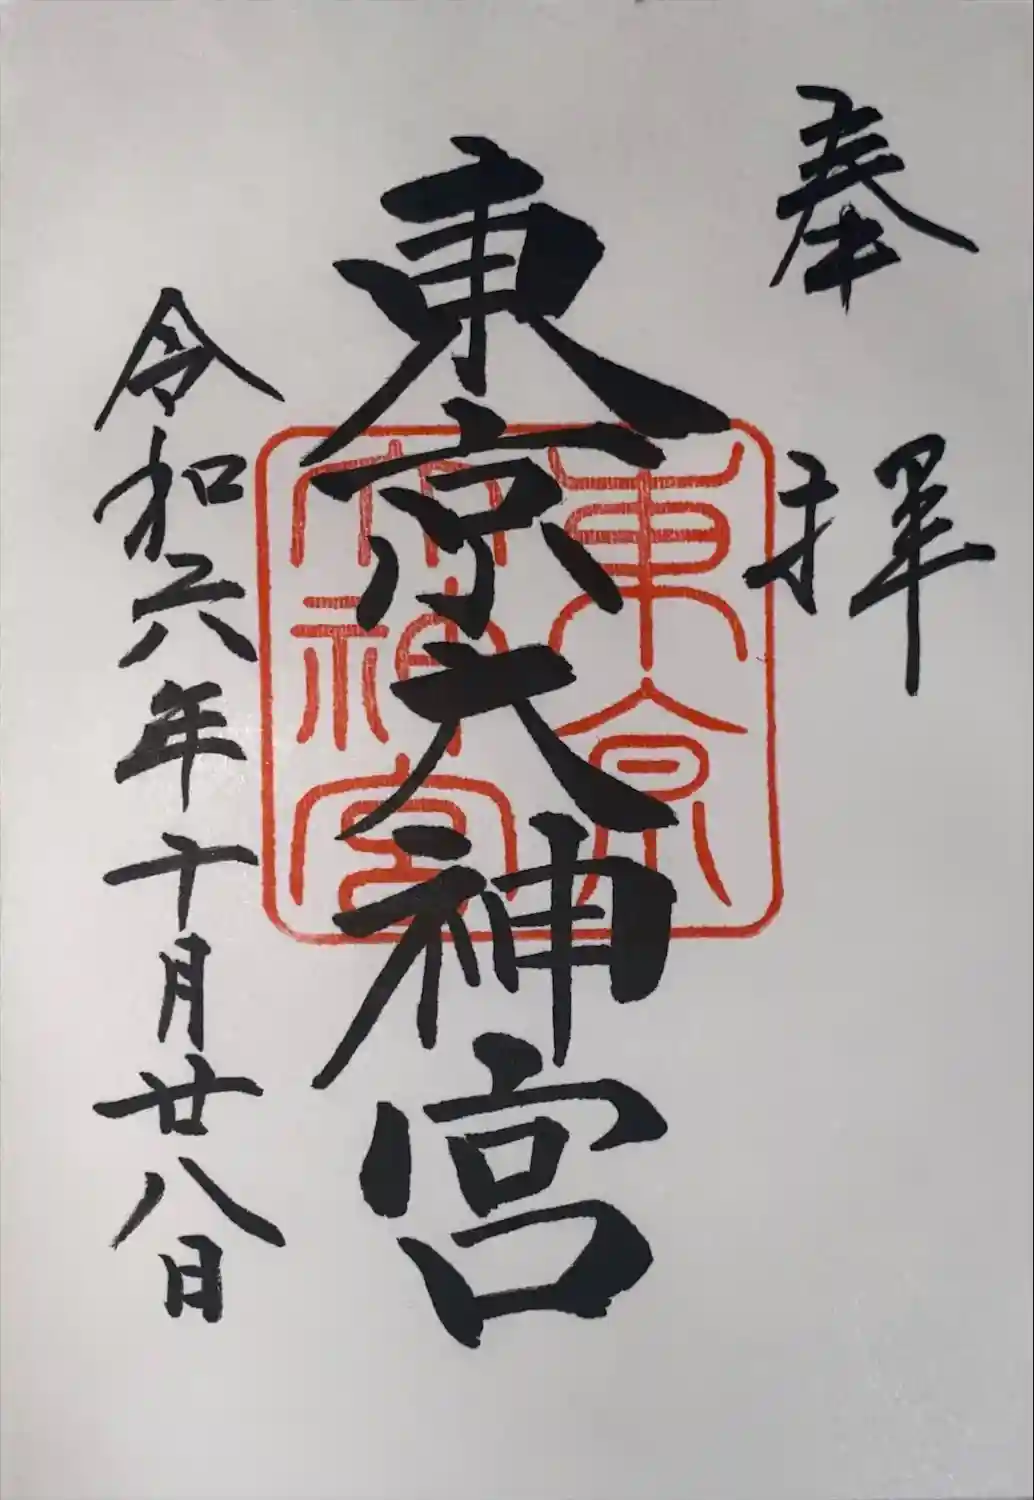 奉拝
東京大神宮
東京
大神宮
令和六年十月廿八日